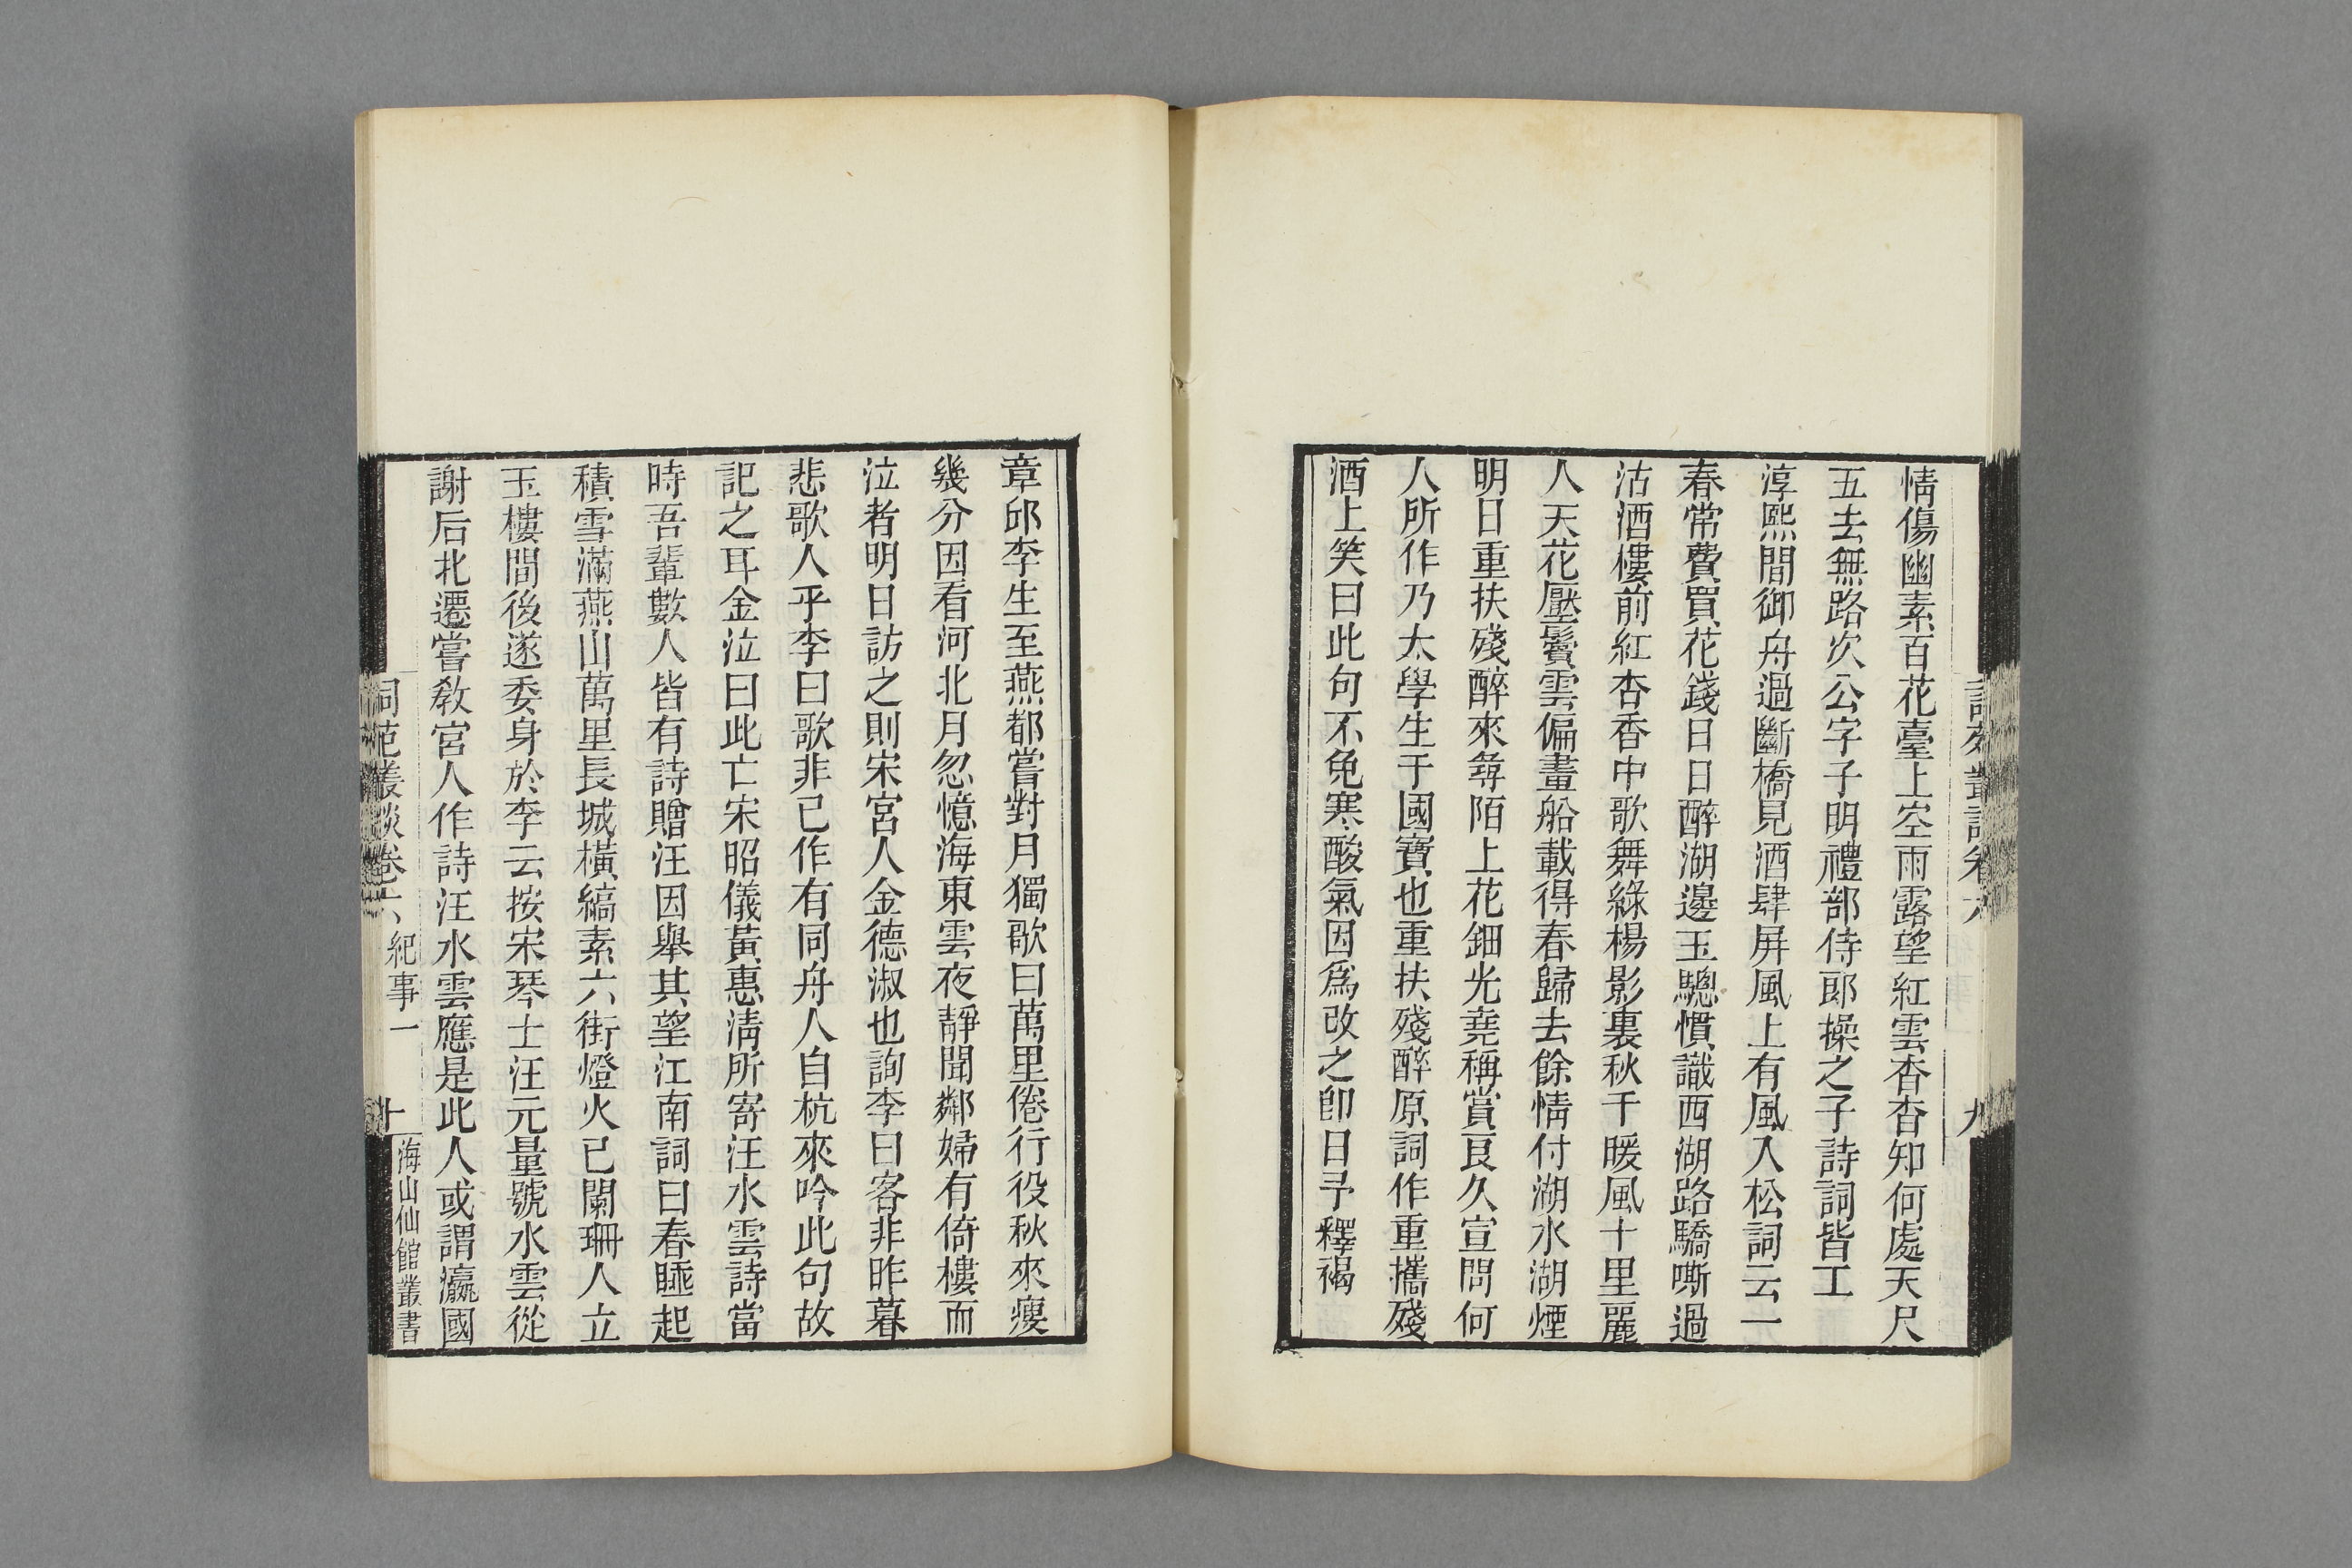 情傷幽素百花臺上空雨露望紅雲杳杳知何處天尺
五去無路次公字子明禮部侍郎操之子詩詞皆工
淳熙間御舟過斷橋見酒肆屏風上有風入松詞云一
春常費買花錢日日醉湖邊玉驄慣識西湖路驕嘶過
沽酒樓前紅杏香中歌舞綠楊影裏秋千暖風十里麗
人天花壓鬢雲偏畫船載得春歸去餘情付湖水湖煙
明日重扶殘醉來尋陌上花鈿光堯稱賞良久宣問何
人所作乃太學生于國寶也重扶殘醉原詞作重攜殘
酒上笑曰此句不免寒酸氣因爲改之卽日予釋褐
章邱李生至燕都嘗對月獨歌曰萬里倦行役秋來瘦
幾分因看河北月忽憶海東雲夜靜聞鄰婦有倚樓而
泣者明日訪之則宋宮人金德淑也詢李曰客非昨暮
悲歌人乎李曰歌非己作有同舟人自杭來吟此句故
記之耳金泣曰此亡宋昭儀黃惠清所寄汪水雲詩當
時吾輩數人皆有詩贈汪因舉其望江南詞曰春睡起
積雪滿燕山萬里長城橫縞素六街燈火已闌珊人立
玉樓間後遂委身於李云按宋琴士汪元量號水雲從
謝后北遷嘗敎宮人作詩汪水雲應是此人或謂瀛國
詞苑叢談卷六 紀事一 十 海山仙館叢書